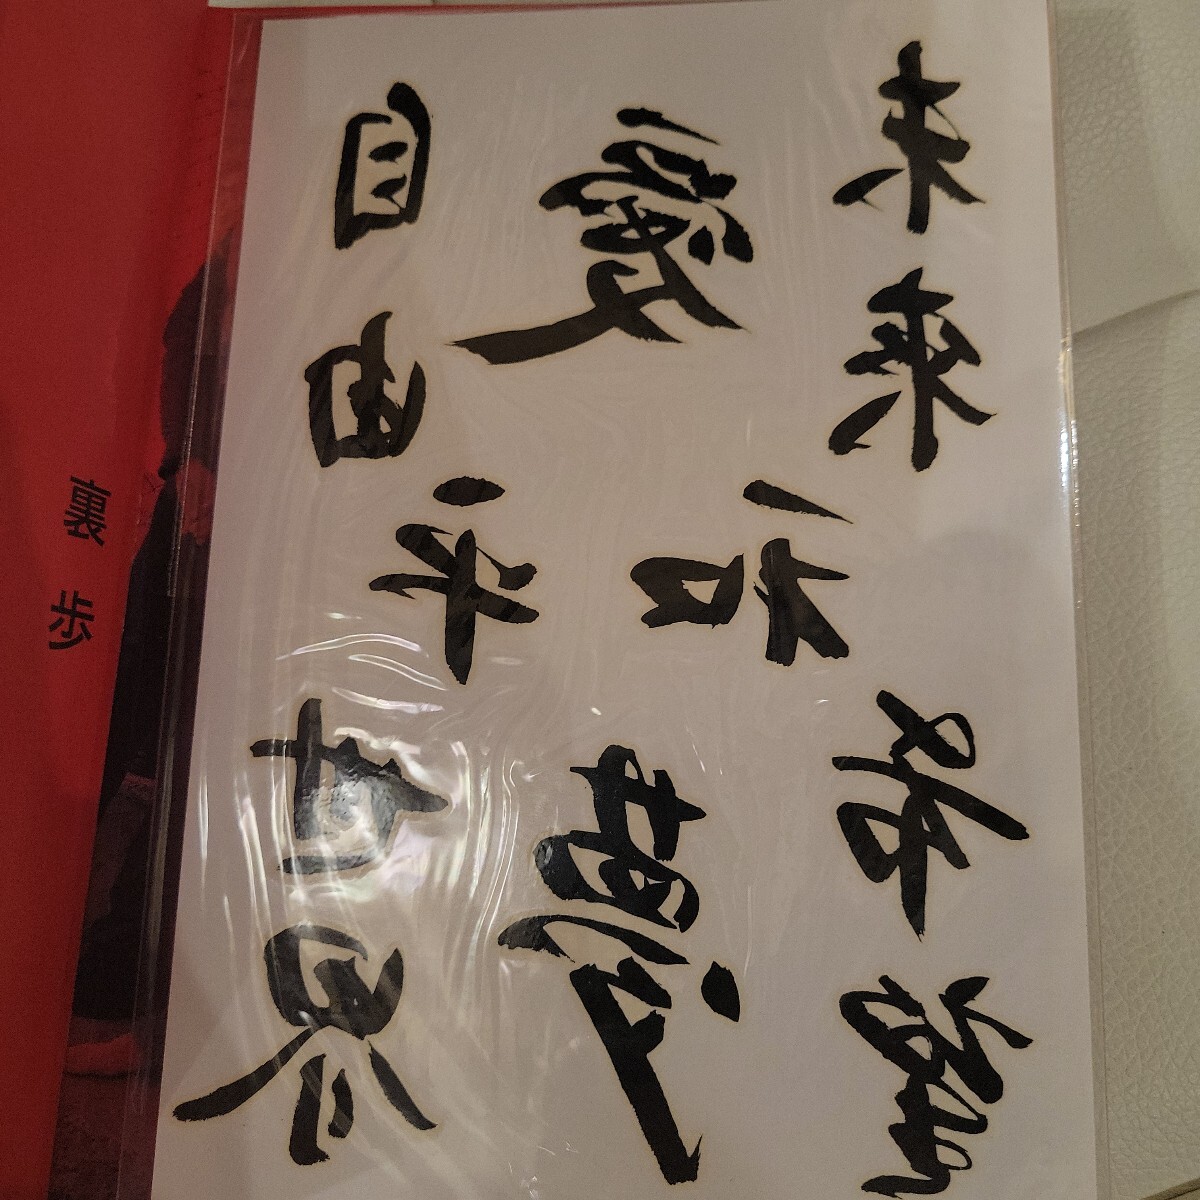 未来
愛
自由
平和
希望
夢
世界
裏
歩